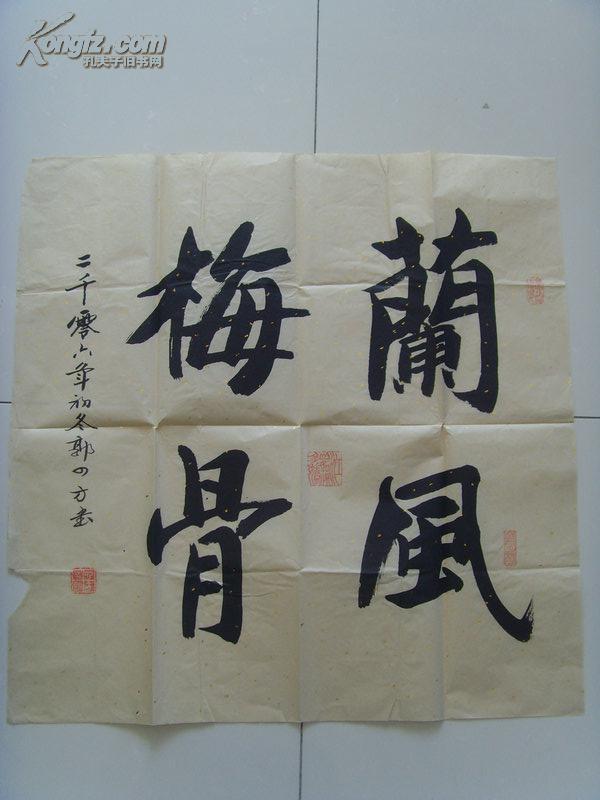 Kongfz.com
孔夫子旧书网
蘭風
梅骨
二千零六年初冬郭四方书